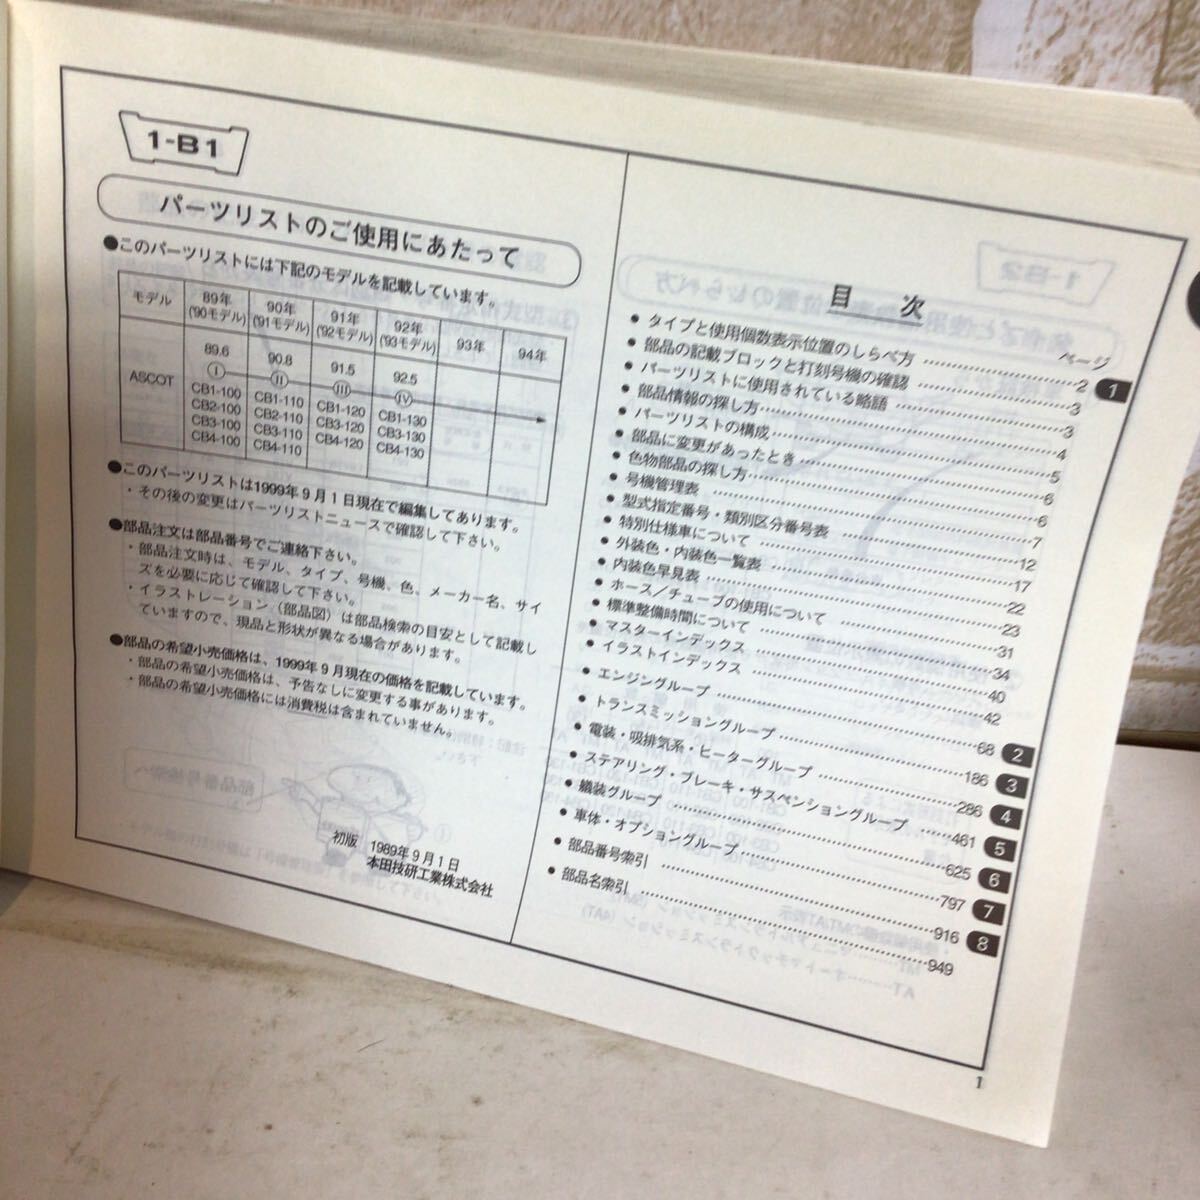 1-B1
パーツリストのご使用にあたって
●このパーツリストには下記のモデルを記載しています。
モデル 89年 ('90モデル) 90年 ('91モデル) 91年 ('92モデル) 92年 ('93モデル) 93年 94年
ASCOT
89.6 90.8 91.5 92.5
Ⅰ Ⅱ Ⅲ Ⅳ
CB1-100 CB1-110 CB1-120 CB1-130
CB2-100 CB2-110 CB3-120 CB3-130
CB3-100 CB3-110 CB4-120 CB4-130
CB4-100 CB4-110
●このパーツリストは1999年9月1日現在で編集してあります。
・その後の変更はパーツリストニュースで確認して下さい。
●部品注文は部品番号でご連絡下さい。
・部品注文時は、モデル、タイプ、号機、色、メーカー名、サイ
ズを必要に応じて確認して下さい。
・イラストレーション（部品図）は部品検索の目安として記載し
ていますので、現品と形状が異なる場合があります。
●部品の希望小売価格は、1999年9月現在の価格を記載しています。
・部品の希望小売価格は、予告なしに変更する事があります。
・部品の希望小売価格には消費税は含まれていません。
初版 1989年9月1日
本田技研工業株式会社
目 次
ページ
● タイプと使用個数表示位置のしらべ方 2 1
● 部品の記載ブロックと打刻号機の確認 3
● パーツリストに使用されている略語 3
● 部品情報の探し方 4
● パーツリストの構成 5
● 部品に変更があったとき 6
● 色物部品の探し方 6
● 号機管理表 7
● 型式指定番号・類別区分番号表 12
● 特別仕様車について 17
● 外装色・内装色一覧表 22
● 内装色早見表 23
● ホース／チューブの使用について 31
● 標準整備時間について 34
● マスターインデックス 40
● イラストインデックス 42
● エンジングループ 68 2
● トランスミッショングループ 186 3
● 電装・吸排気系・ヒーターグループ 286 4
● ステアリング・ブレーキ・サスペンショングループ 461 5
● 艤装グループ 625 6
● 車体・オプショングループ 797 7
● 部品番号索引 916 8
● 部品名索引 949
1